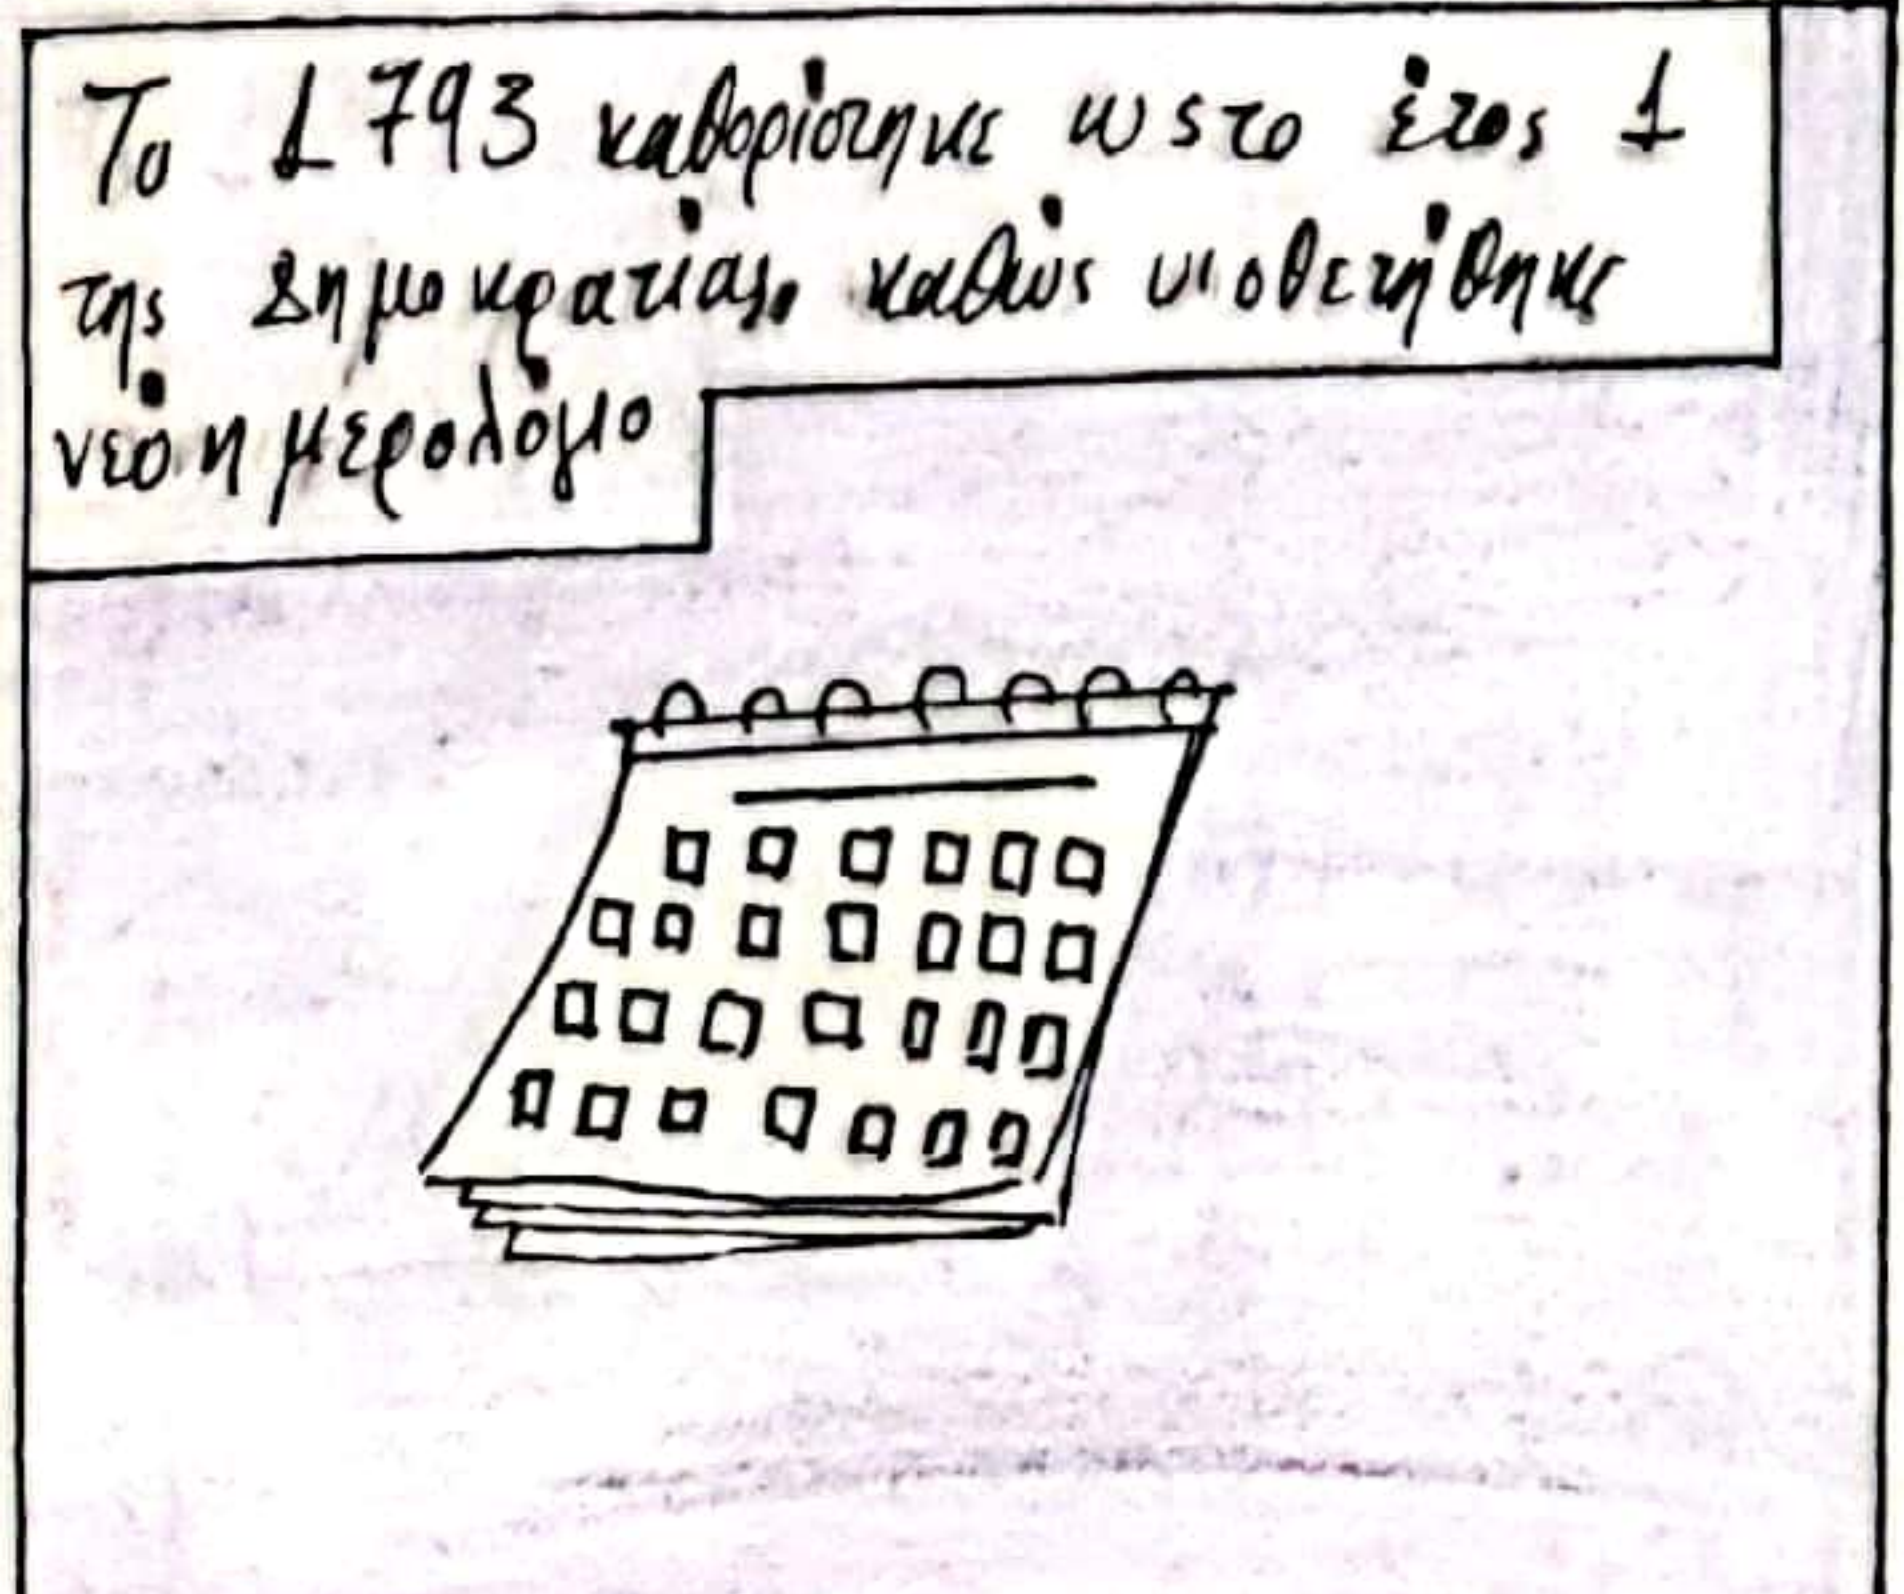 Το 1793 καθορίστηκε ως το έτος 1
της δημοκρατίας, καθώς υιοθετήθηκε
νέο ημερολόγιο